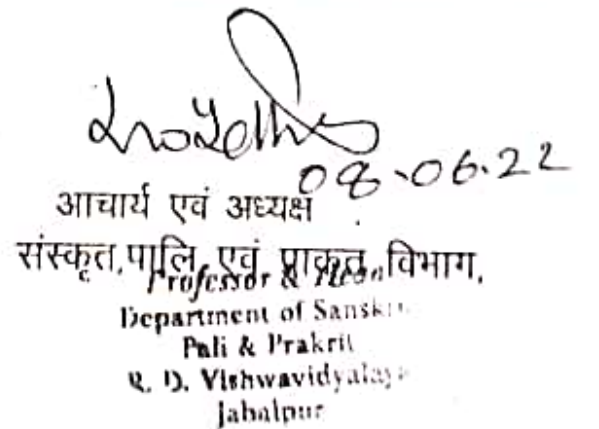 08.06.22
आचार्य एवं अध्यक्ष
संस्कृत,पालि एवं प्राकृत विभाग,
Professor & Head
Department of Sanskrit
Pali & Prakrit
R. D. Vishwavidyalaya
Jabalpur